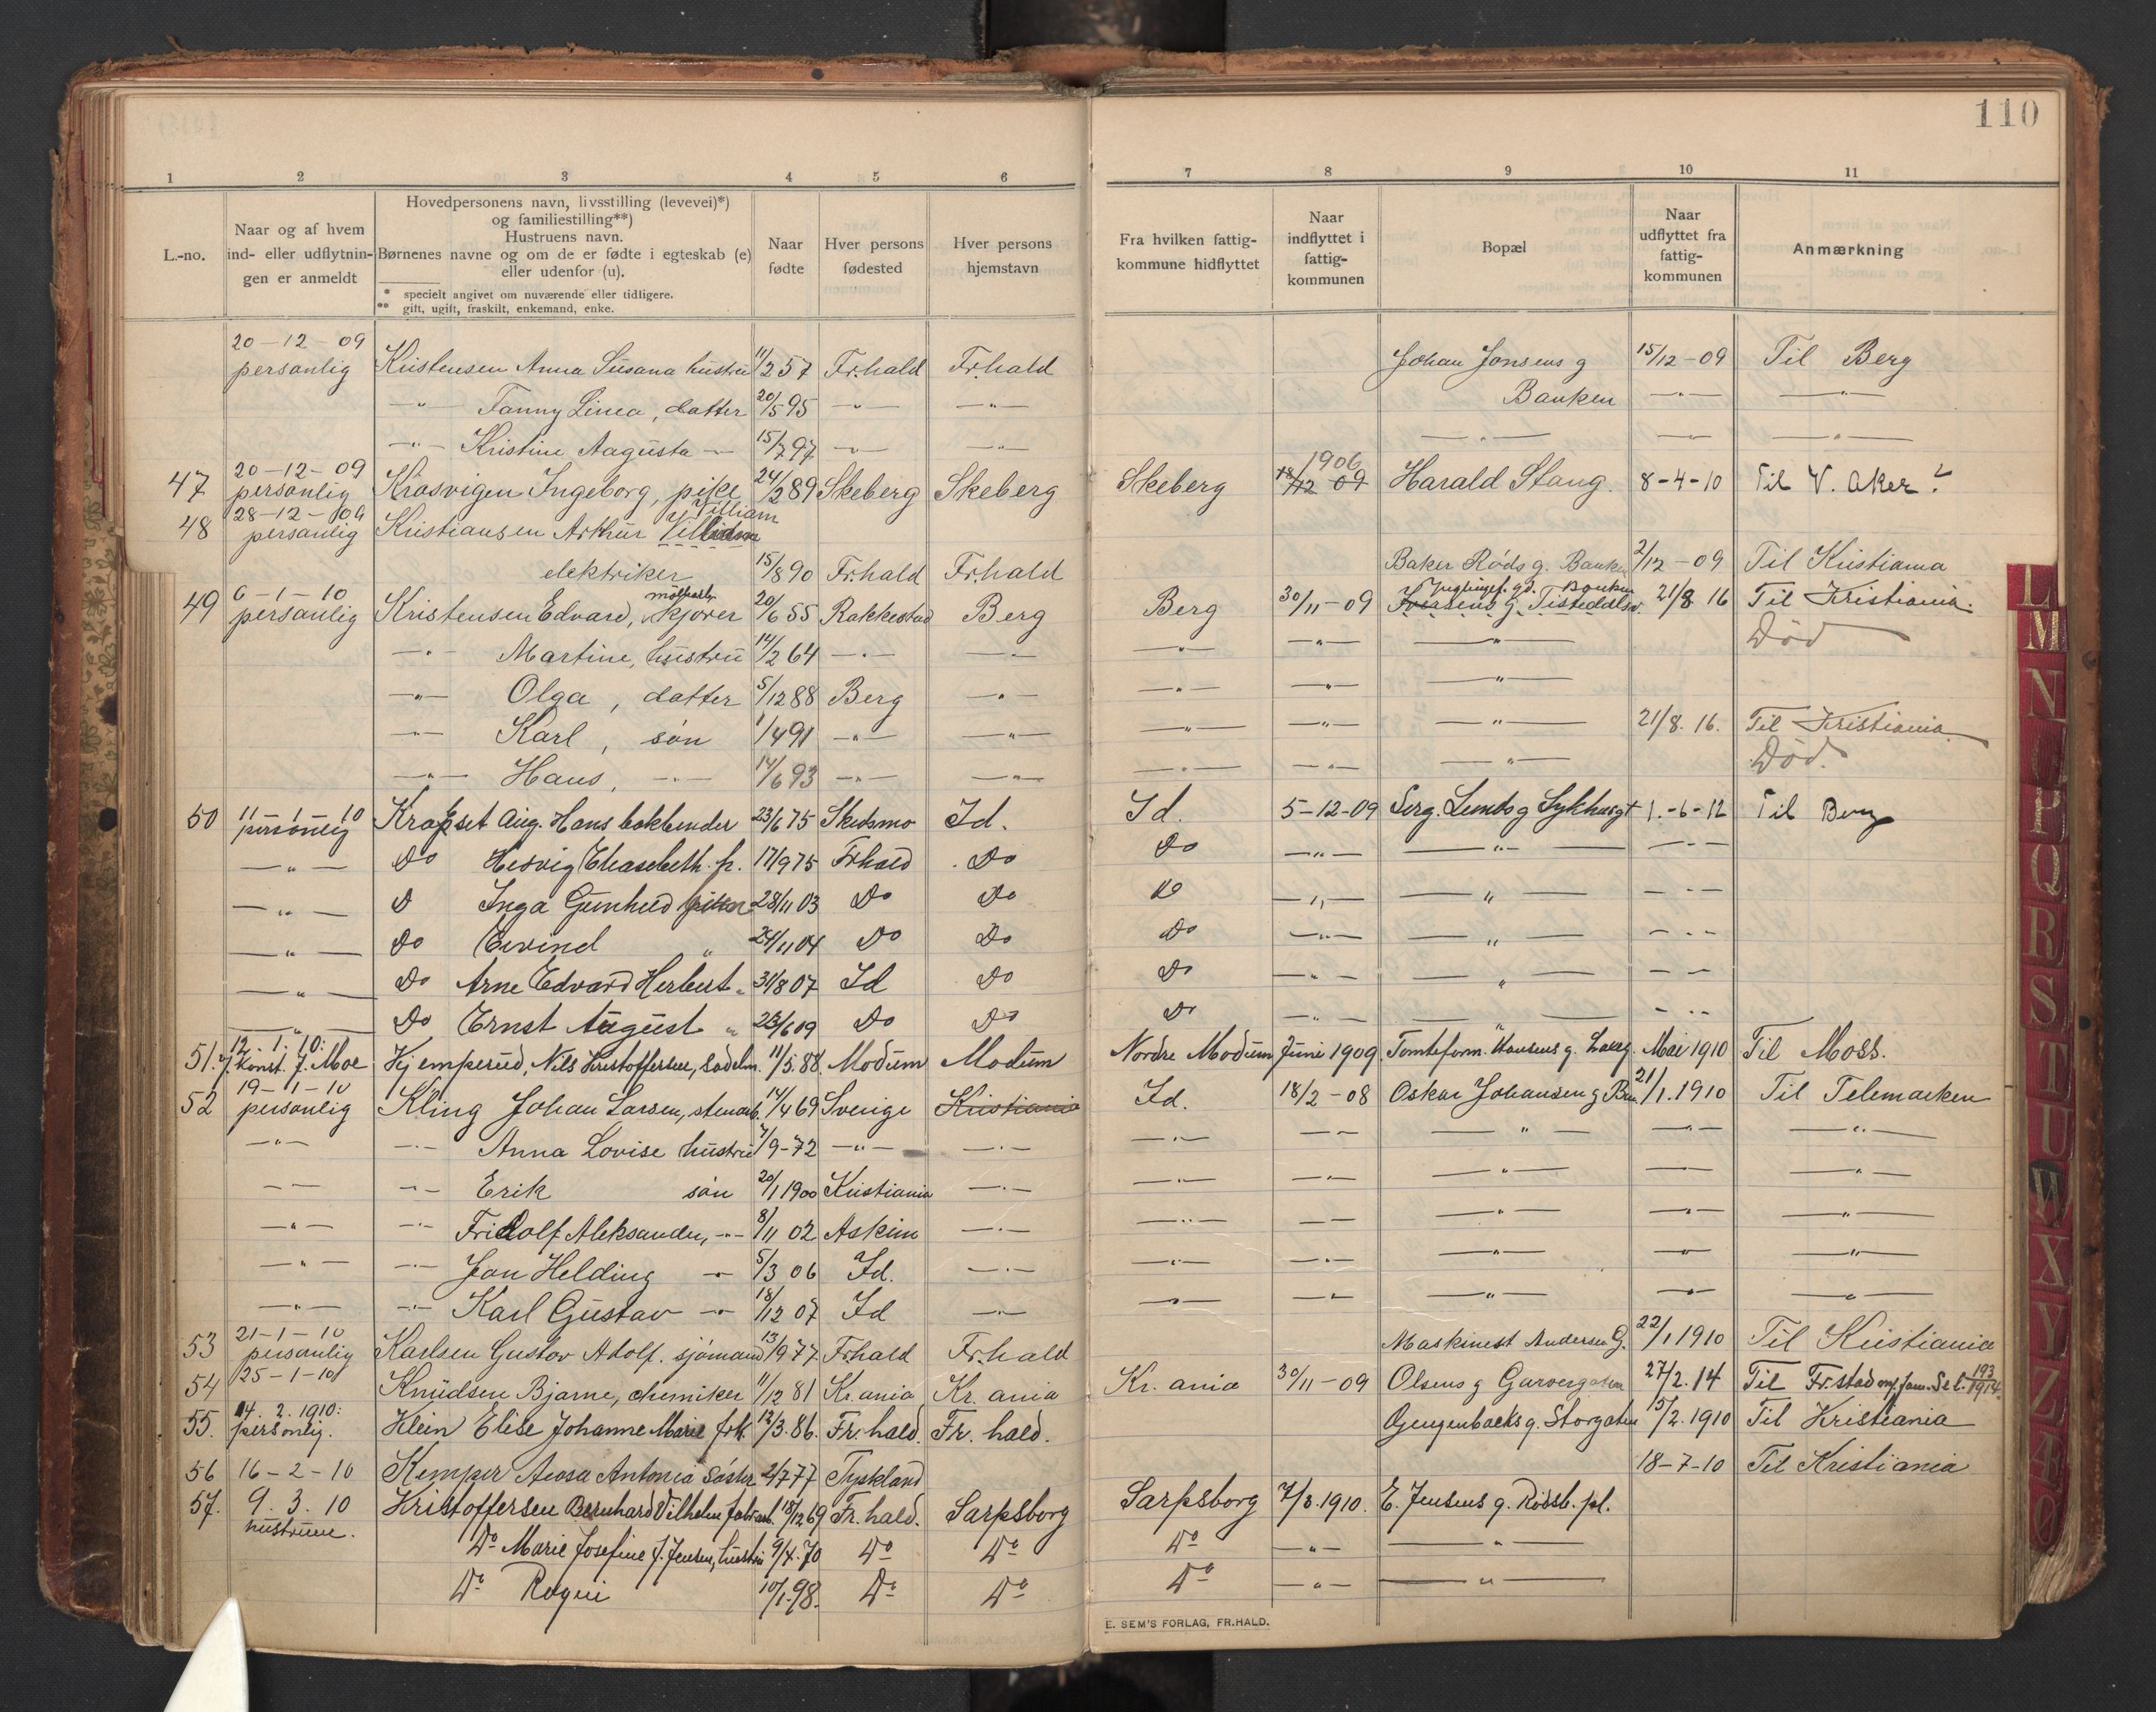 110
1 2 3 4 5 6 7 8 9 10 11
L.-no.
Naar og af hvem ind- eller udflytnin-gen er anmeldt
Hovedpersonens navn, livsstilling (levevei)*)
og familiestilling**)
Hustruens navn.
Børnenes navne og om de er fødte i egteskab (e)
eller udenfor (u).
* specielt angivet om nuværende eller tidligere.
** gift, ugift, fraskilt, enkemand, enke.
Naar fødte
Hver persons fødested
Hver persons hjemstavn
Fra hvilken fattig-kommune hidflyttet
Naar indflyttet i fattig-kommunen
Bopæl
Naar udflyttet fra fattig-kommunen
Anmærkning
20-12-09
personlig Kristensen Anna Susana hustru 11/2 57 Fr.hald Fr.hald Johan Jonsens g 15/12-09 Til Berg
-"- Fanny Linea, datter 20/5 95 -"- -"- Banken -"- -"-
-"- Kristine Aagusta -"- 15/7 97 -"- -"- -"- -"- -"-
20-12-09 1906
47 personlig Kråsvigen Ingeborg, pike 24/2 89 Skeberg Skeberg Skeberg 18/12 09 Harald Stang. 8-4-10 Til V. Aker?
28-12-09 Villiam
48 personlig Kristiansen Arthur
elektriker 15/8 90 Fr.hald Fr.hald Baker Røds g. Banken 2/12-09 Til Kristiania
6-1-10
49 personlig Kristensen Edvard, kjører 20/6 55 Rakkestad Berg Berg 30/11-09 Iversens g. Tistedalsv. 21/8 16 Til Kristiania.
-"- Martine, hustru 14/2 64 -"- -"- -"- -"- -"- Død
-"- Olga, datter 5/12 88 Berg -"- -"- -"- -"-
-"- Karl, søn 1/4 91 -"- -"- -"- -"- -"- 21/8. 16. Til Kristiania
-"- Hans, -"- 14/6 93 -"- -"- -"- -"- -"- Død.
50 11-1-10 personlig Krogset Aug. Hans bokbinder 23/6 75 Skedsmo Id. Id. 5-12-09 Serg. Lunds g Sykhusgt 1.-6-12 Til Berg
-"- Do Hedvig Elisabeth h. 17/9 75 Frhald Do Do -"- -"- -"-
-"- D Inga Gunhild 28/11 03 Do Do Do -"- -"- -"-
-"- Do Eivind " 24/11 04 Do Do Do -"- -"- -"-
-"- Do Arne Edvard Herbert " 31/8 07 Id Do Do -"- -"- -"-
-"- Do Ernst August " 25/6 09 Do Do Do -"- -"- -"-
12.1.10:
51. J. Moe Kjemperud, Nils Kristoffersen, sadelm. 11/5.88. Modum Modum Nordre Modum Juni 1909 Tomteform. Hansens g. Mai 1910 Til Moss.
19-1-10
52 personlig Kling Johan Larsen, stenarb. 14/4 69 Sverige Kristiania Id. 18/2-08 Oskar Johansen g 21/1. 1910 Til Telemarken
-"- -"- Anna Lovise hustru 7/9-72 -"- -"- -"- -"- -"- -"- -"-
-"- -"- Erik søn 20/1 1900 Kristiania -"- -"- -"- -"- -"- -"-
-"- -"- Fridolf Aleksander, -"- 8/11 02 Askim -"- -"- -"- -"- -"- -"-
-"- -"- Jon Helding -"- 5/3 06 Id. -"- -"- -"- -"- -"- -"-
-"- -"- Karl Gustav -"- 18/12 07 Id -"- -"- -"- -"- -"- -"-
21-1-10
53 personlig Karlsen Gustav Adolf. sjømand 13/9 77 Fr.hald Fr.hald Maskinist Andersen G. 22/1 1910 Til Kristiania
54 25-1-10 Knudsen Bjarne, chemiker 11/12 81 Kr.ania Kr.ania Kr.ania 30/11-09 Olsens g Garvergaten 27/2.14 Til Fr.stad 193/1914.
14.2.1910:
55. personlig. Klein Elise Johanne Marie frk. 12/3.86. Fr.hald. Fr.hald. Gjengenbacks g. Storgaten 15/2.1910 Til Kristiania
56 16-2-10 Kemper Antonia søster 2/7 77 Tyskland 18-7-10 Til Kristiania
57. 9.3.10 Kristoffersen Bernhard Vilhelm fabr.arb. 18/12 69 Fr.hald. Sarpsborg Sarpsborg 7/3.1910. E. Jensens g. Rødsb. pl.
hustruen. Do Marie Josefine J. Jensen, hustru 9/4.70 Do Do Do -"- -"-
Do Ragni 10/1.98. Do Do Do -"- -"-
E. SEM'S FORLAG, FR.HALD.
L
M
N
O
P
Q
R
S
T
U
W
X
Y
Z
Æ
Ø